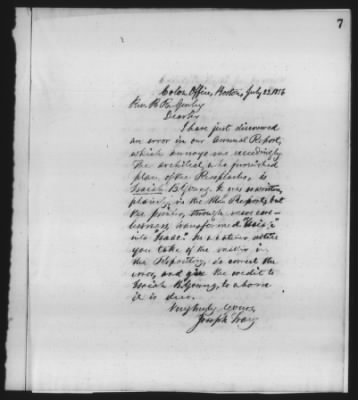 7
Colon. Office, Boston, July 23. 1856
Rev. R. R. Gurley
Dear Sir
I have just discovered
an error in our Annual Report,
which annoys me exceedingly.
The architect, who furnished
plan of the Receptacles, is
Isaiah B. Young. It was written
plainly in the Mss Report, but
the printer, through mere care-
lessness, transformed "Isaiah"
into "Isaac." In whatever notice
you take of the matter in
the Repository, do correct the
error, and give the credit to
Isaiah B. Young, to whom
it is due.
Very truly yours,
Joseph Tracy